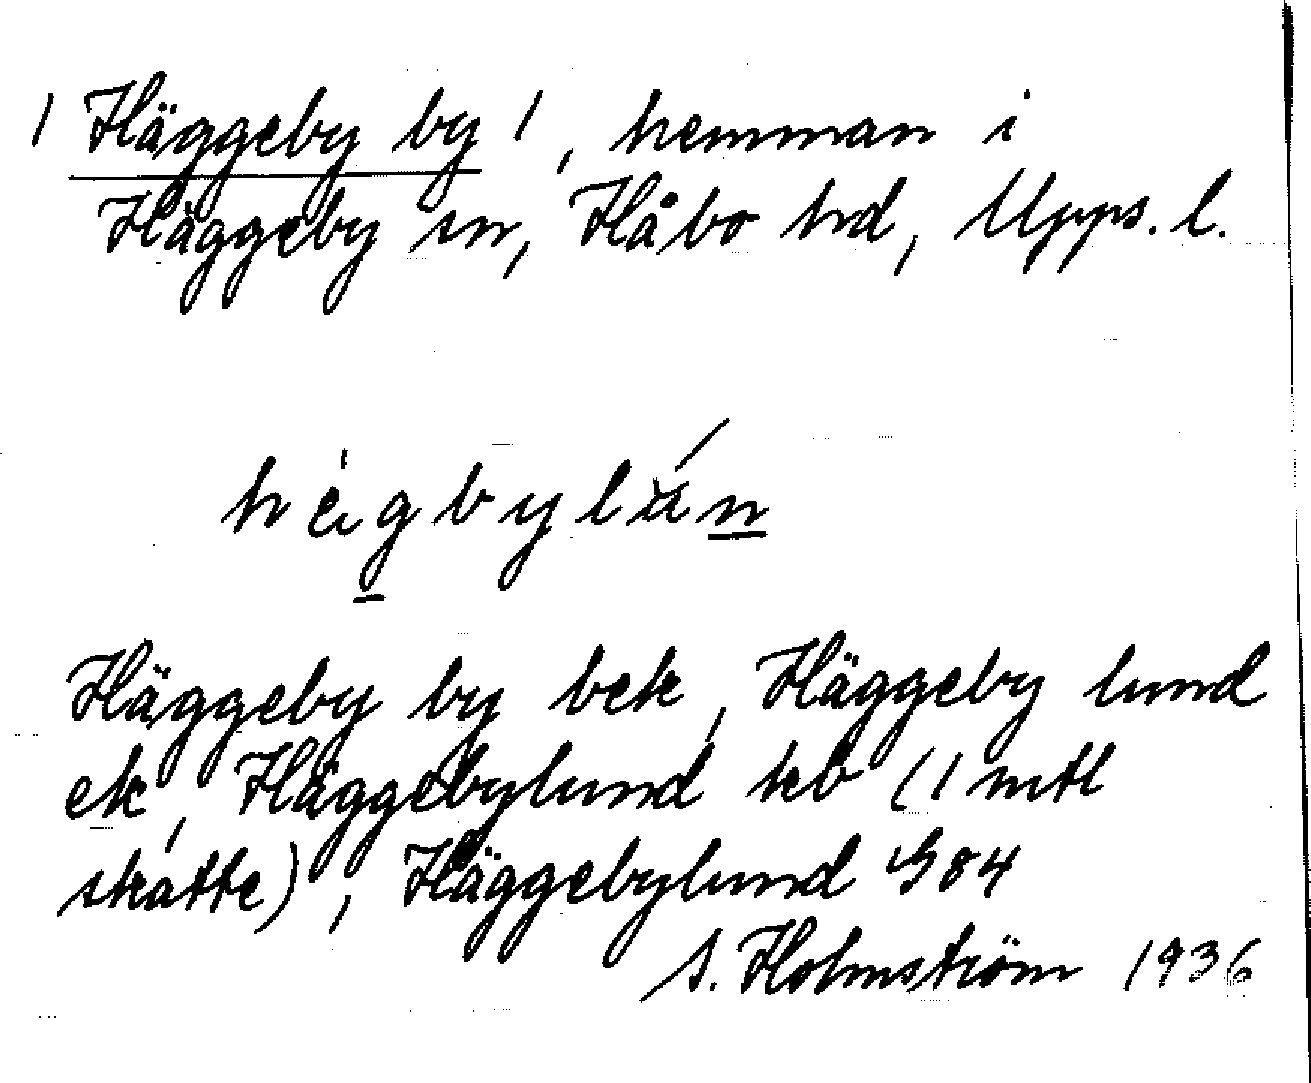 / Häggeby by /, hemman i
Häggeby sn, Håbo hd, Upps. l.
Häggeby by bek, Häggeby lund
ek, Häggebylund kb (1 mtl
skatte), Häggebylund G04
S. Holmström 1936